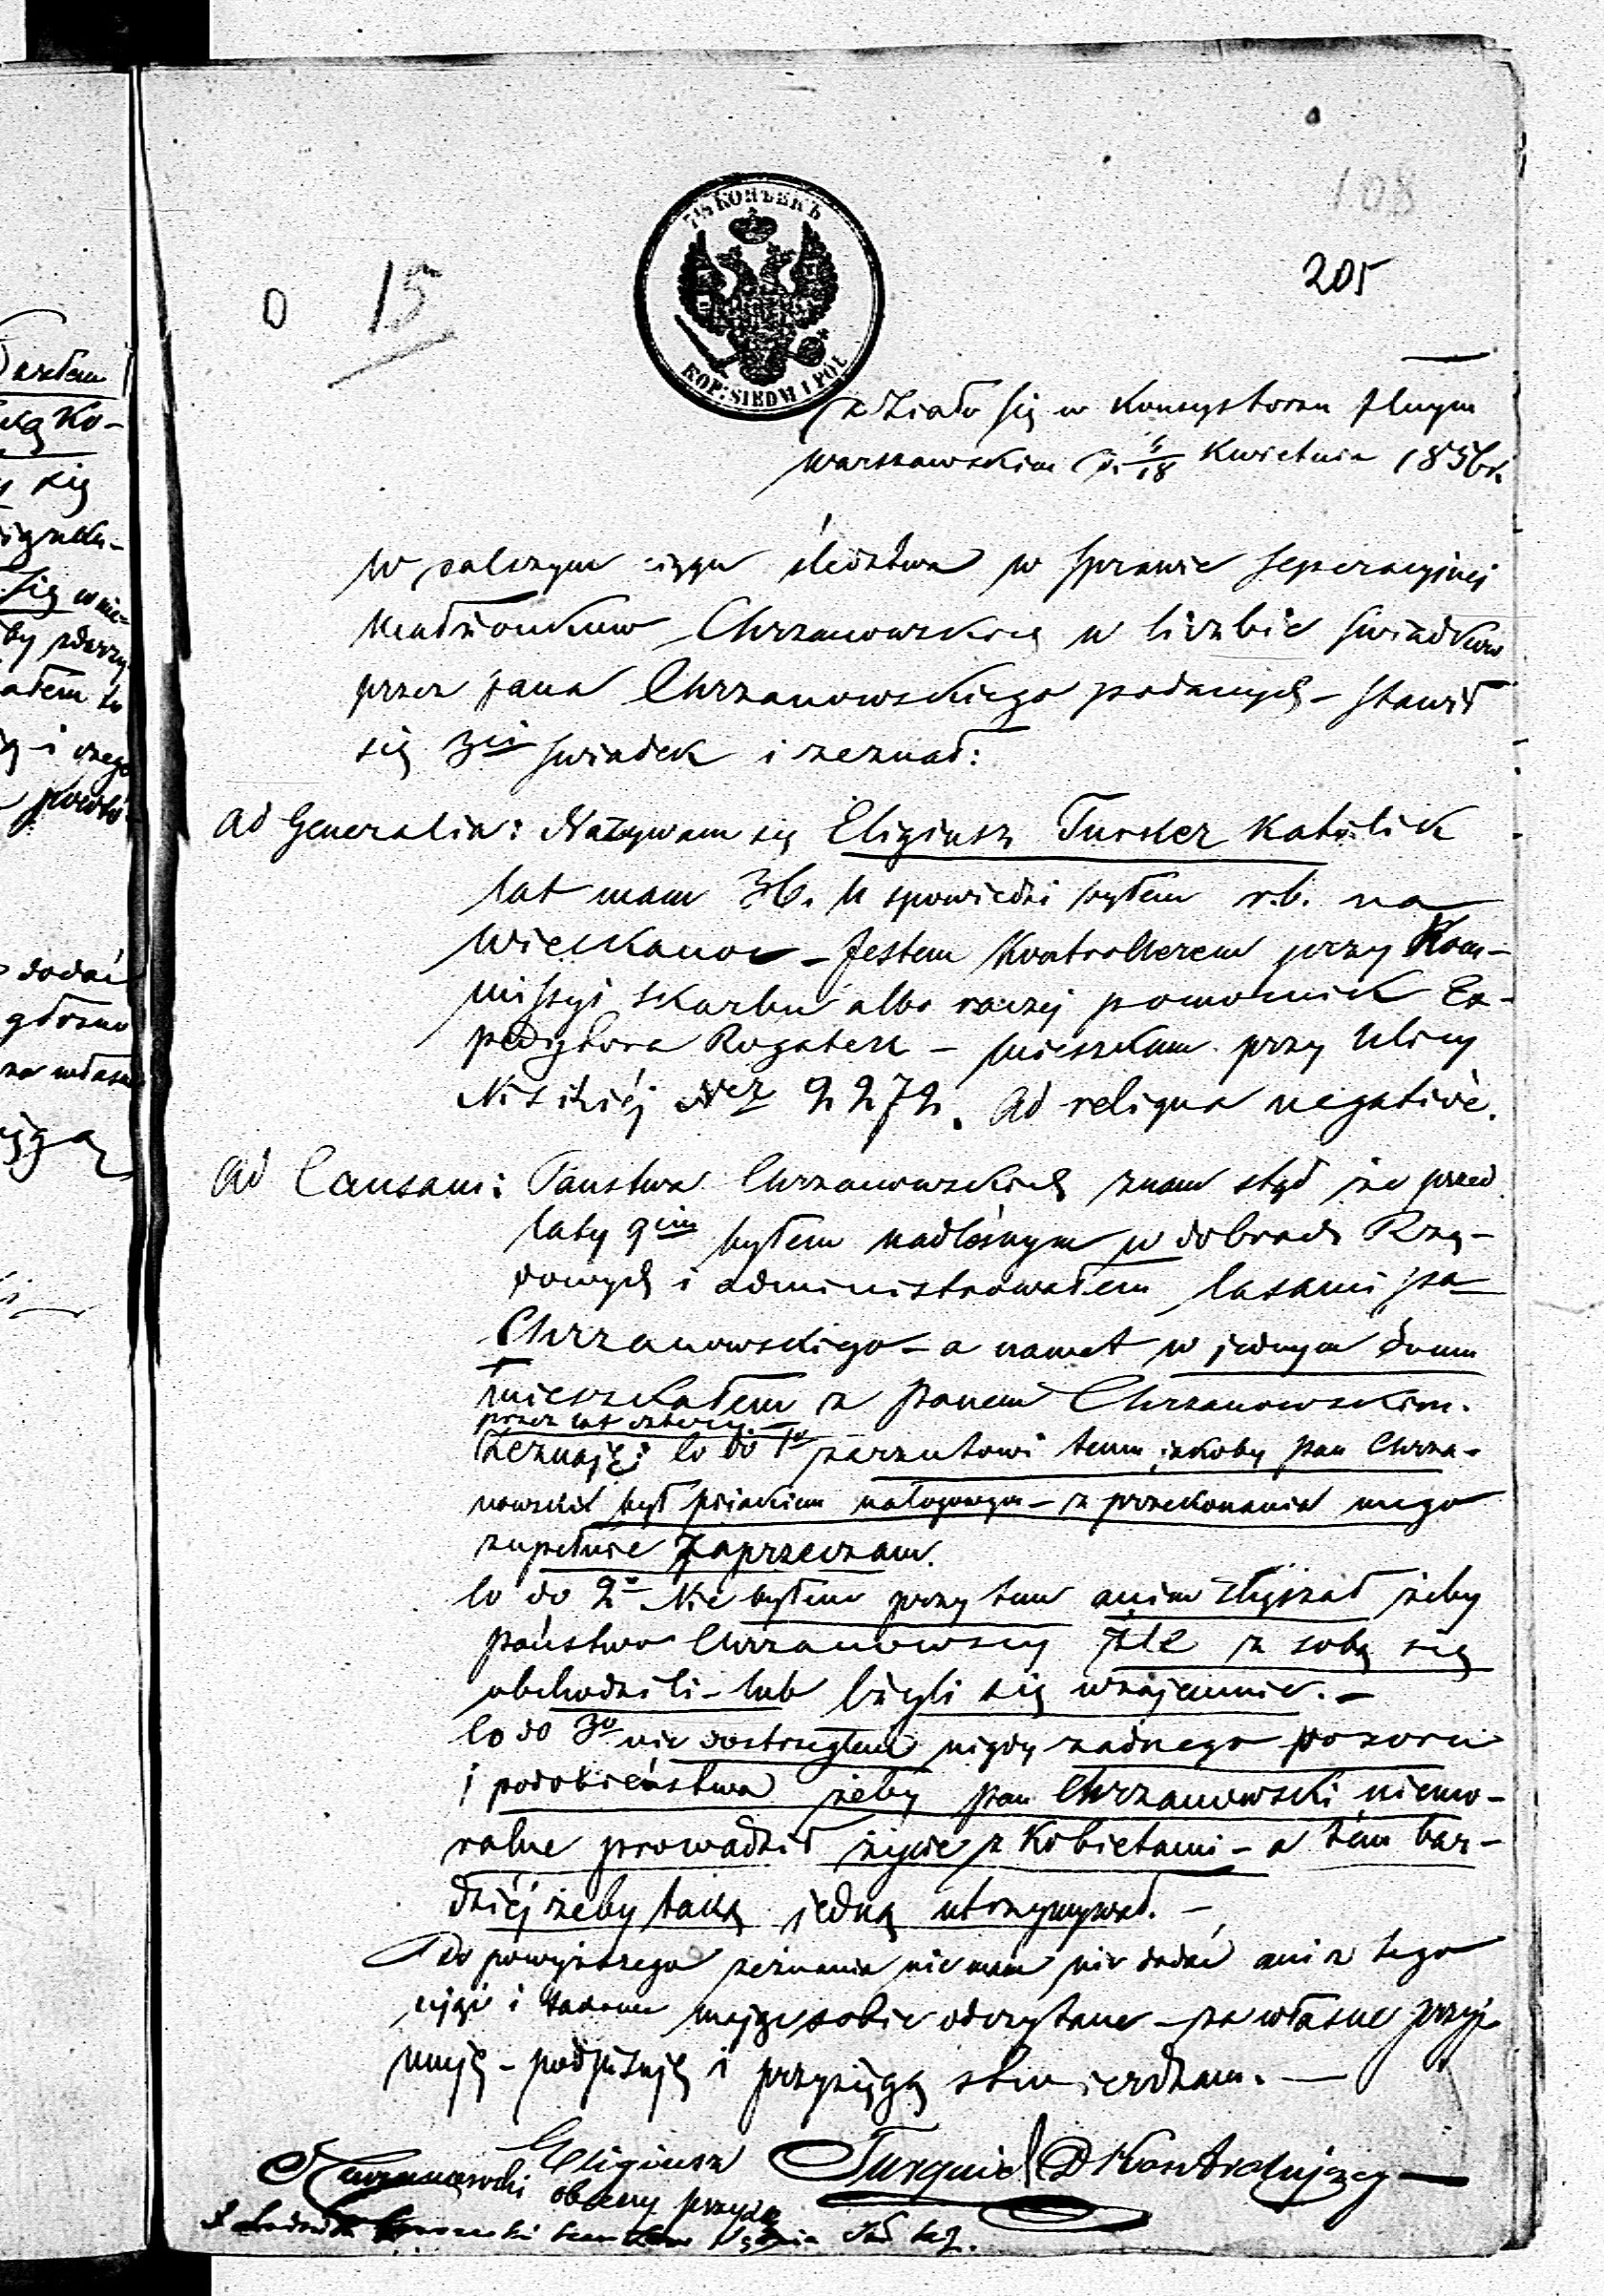 108
205
0 15
7½ КОПѢЕКЪ
KOP: SIEDM I PÓŁ
Działo się w Konsystorzu Jlnym
Warszawskim d. 6/18 Kwietnia 1856 r.
W dalszym ciągu śledztwa w sprawie seperacyjnej
małżonków Chrzanowskich w liczbie świadków
przez pana Chrzanowskiego podanych – stawił
się 3ci świadek i zeznał:
Ad Generalia: Nazywam się Eligiusz Turker Katolik
lat mam 36. U spowiedzi byłem r.b. na
Wielkanoc – Jestem Kontrollerem przy Kom-
missyi Skarbu albo raczej pomocnik Ex-
pedytora Rogatek – mieszkam przy Ulicy
Nizkiéj Nr 2272. Ad reliqua negative.
Ad Causam: Państwa Chrzanowskich znam stąd że przed
laty 9cią byłem nadleśnym w dobrach Rzą-
dowych i administrowałem lasami pa
Chrzanowskiego – a nawet w jednym domu
mieszkałem z panem Chrzanowskim.
przez lat cztery –
Zeznaję: Co do 1o zarzutowi temu jakoby pan Chrza-
nowski był pijakiem nałogowym – z przekonania mego
zupełnie zaprzeczam.
Co do 2o Nie byłem przy tem anim słyszał żeby
państwo Chrzanowscy źle z sobą się
obchodzili – lub bili się wzajemnie. –
Co do 3o nie dostrzegłem nigdy żadnego pozoru
i podobieństwa żeby pan Chrzanowski niemo-
ralne prowadził życie z Kobietami – a tém bar-
dziéj żeby taką jedną utrzymywał. –
Do powyższego zeznania nie mam nic dodać ani z tego
ująć i takowe mając sobie odczytane – za własne przyj-
muję – podpisuję i przysięgą stwierdzam. –
Eligiusz Turquie Kontrolujący
Chrzanowski obecny przysię